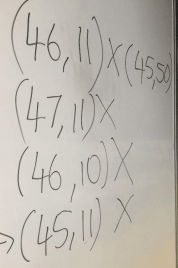 (46,11)X(45,50)
(47,11)X
(46,10)X
→(45,11)X